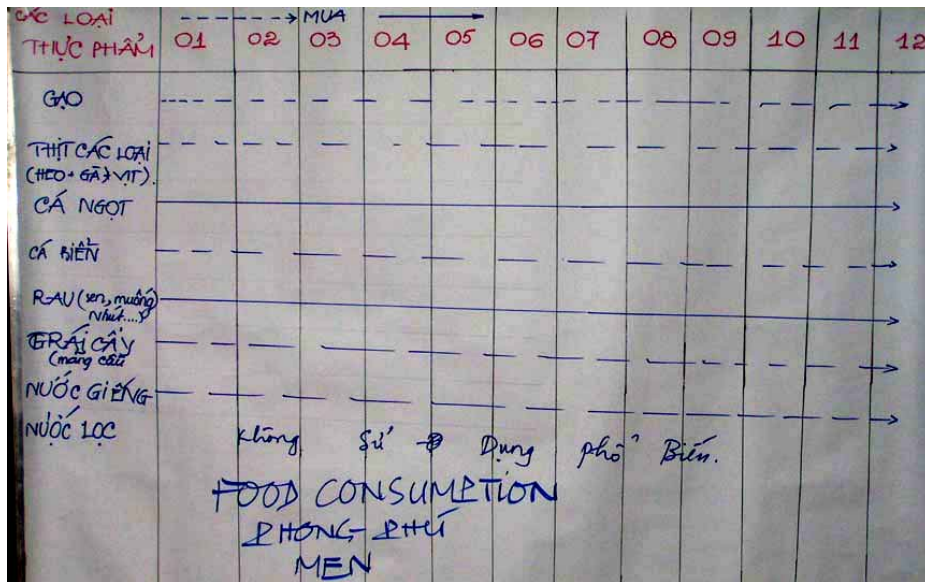 CÁC LOẠI MUA
THỰC PHẨM 01 02 03 04 05 06 07 08 09 10 11 12
GẠO
THỊT CÁC LOẠI
(HEO + GÀ + VỊT).
CÁ NGỌT
CÁ BIỂN
RAU (sen, muống
Nhút....)
TRÁI CÂY
(mãng cầu
NƯỚC GIẾNG
NƯỚC LỌC Không Sử Dụng phổ Biến.
FOOD CONSUMPTION
PHONG-PHÚ
MEN